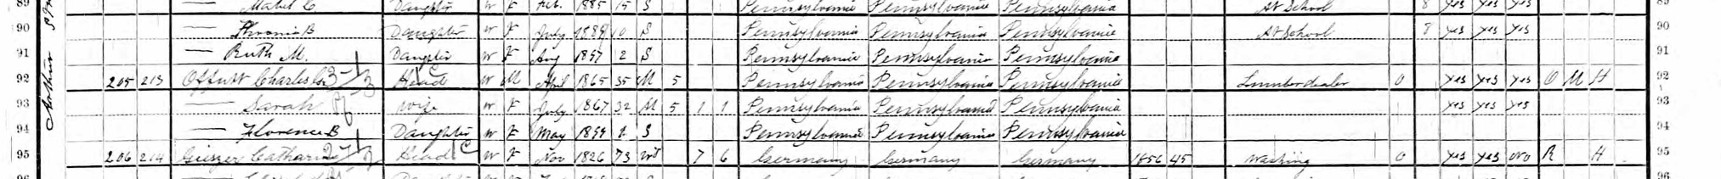 89 Mabel C Daughter W F Feb. 1885 15 S Pennsylvania Pennsylvania Pennsylvania At School 8 yes yes yes 89
90 — B Daughter W F July 1889 10 S Pennsylvania Pennsylvania Pennsylvania At School 8 yes yes yes 90
91 — Ruth M. Daughter W F Aug 1897 2 S Pennsylvania Pennsylvania Pennsylvania 91
92 205 213 Offutt Charles Head W M April 1865 35 M 5 Pennsylvania Pennsylvania Pennsylvania Lumber dealer 0 yes yes yes O M H 92
93 — Sarah Wife W F July 1867 32 M 5 1 1 Pennsylvania Pennsylvania Pennsylvania yes yes yes 93
94 — Florence B Daughter W F May 1899 1 S Pennsylvania Pennsylvania Pennsylvania 94
95 206 214 Catharine Head W F Nov 1826 73 Wd 7 6 Germany Germany Germany 1856 45 Washing 0 yes yes no R H 95
96 96